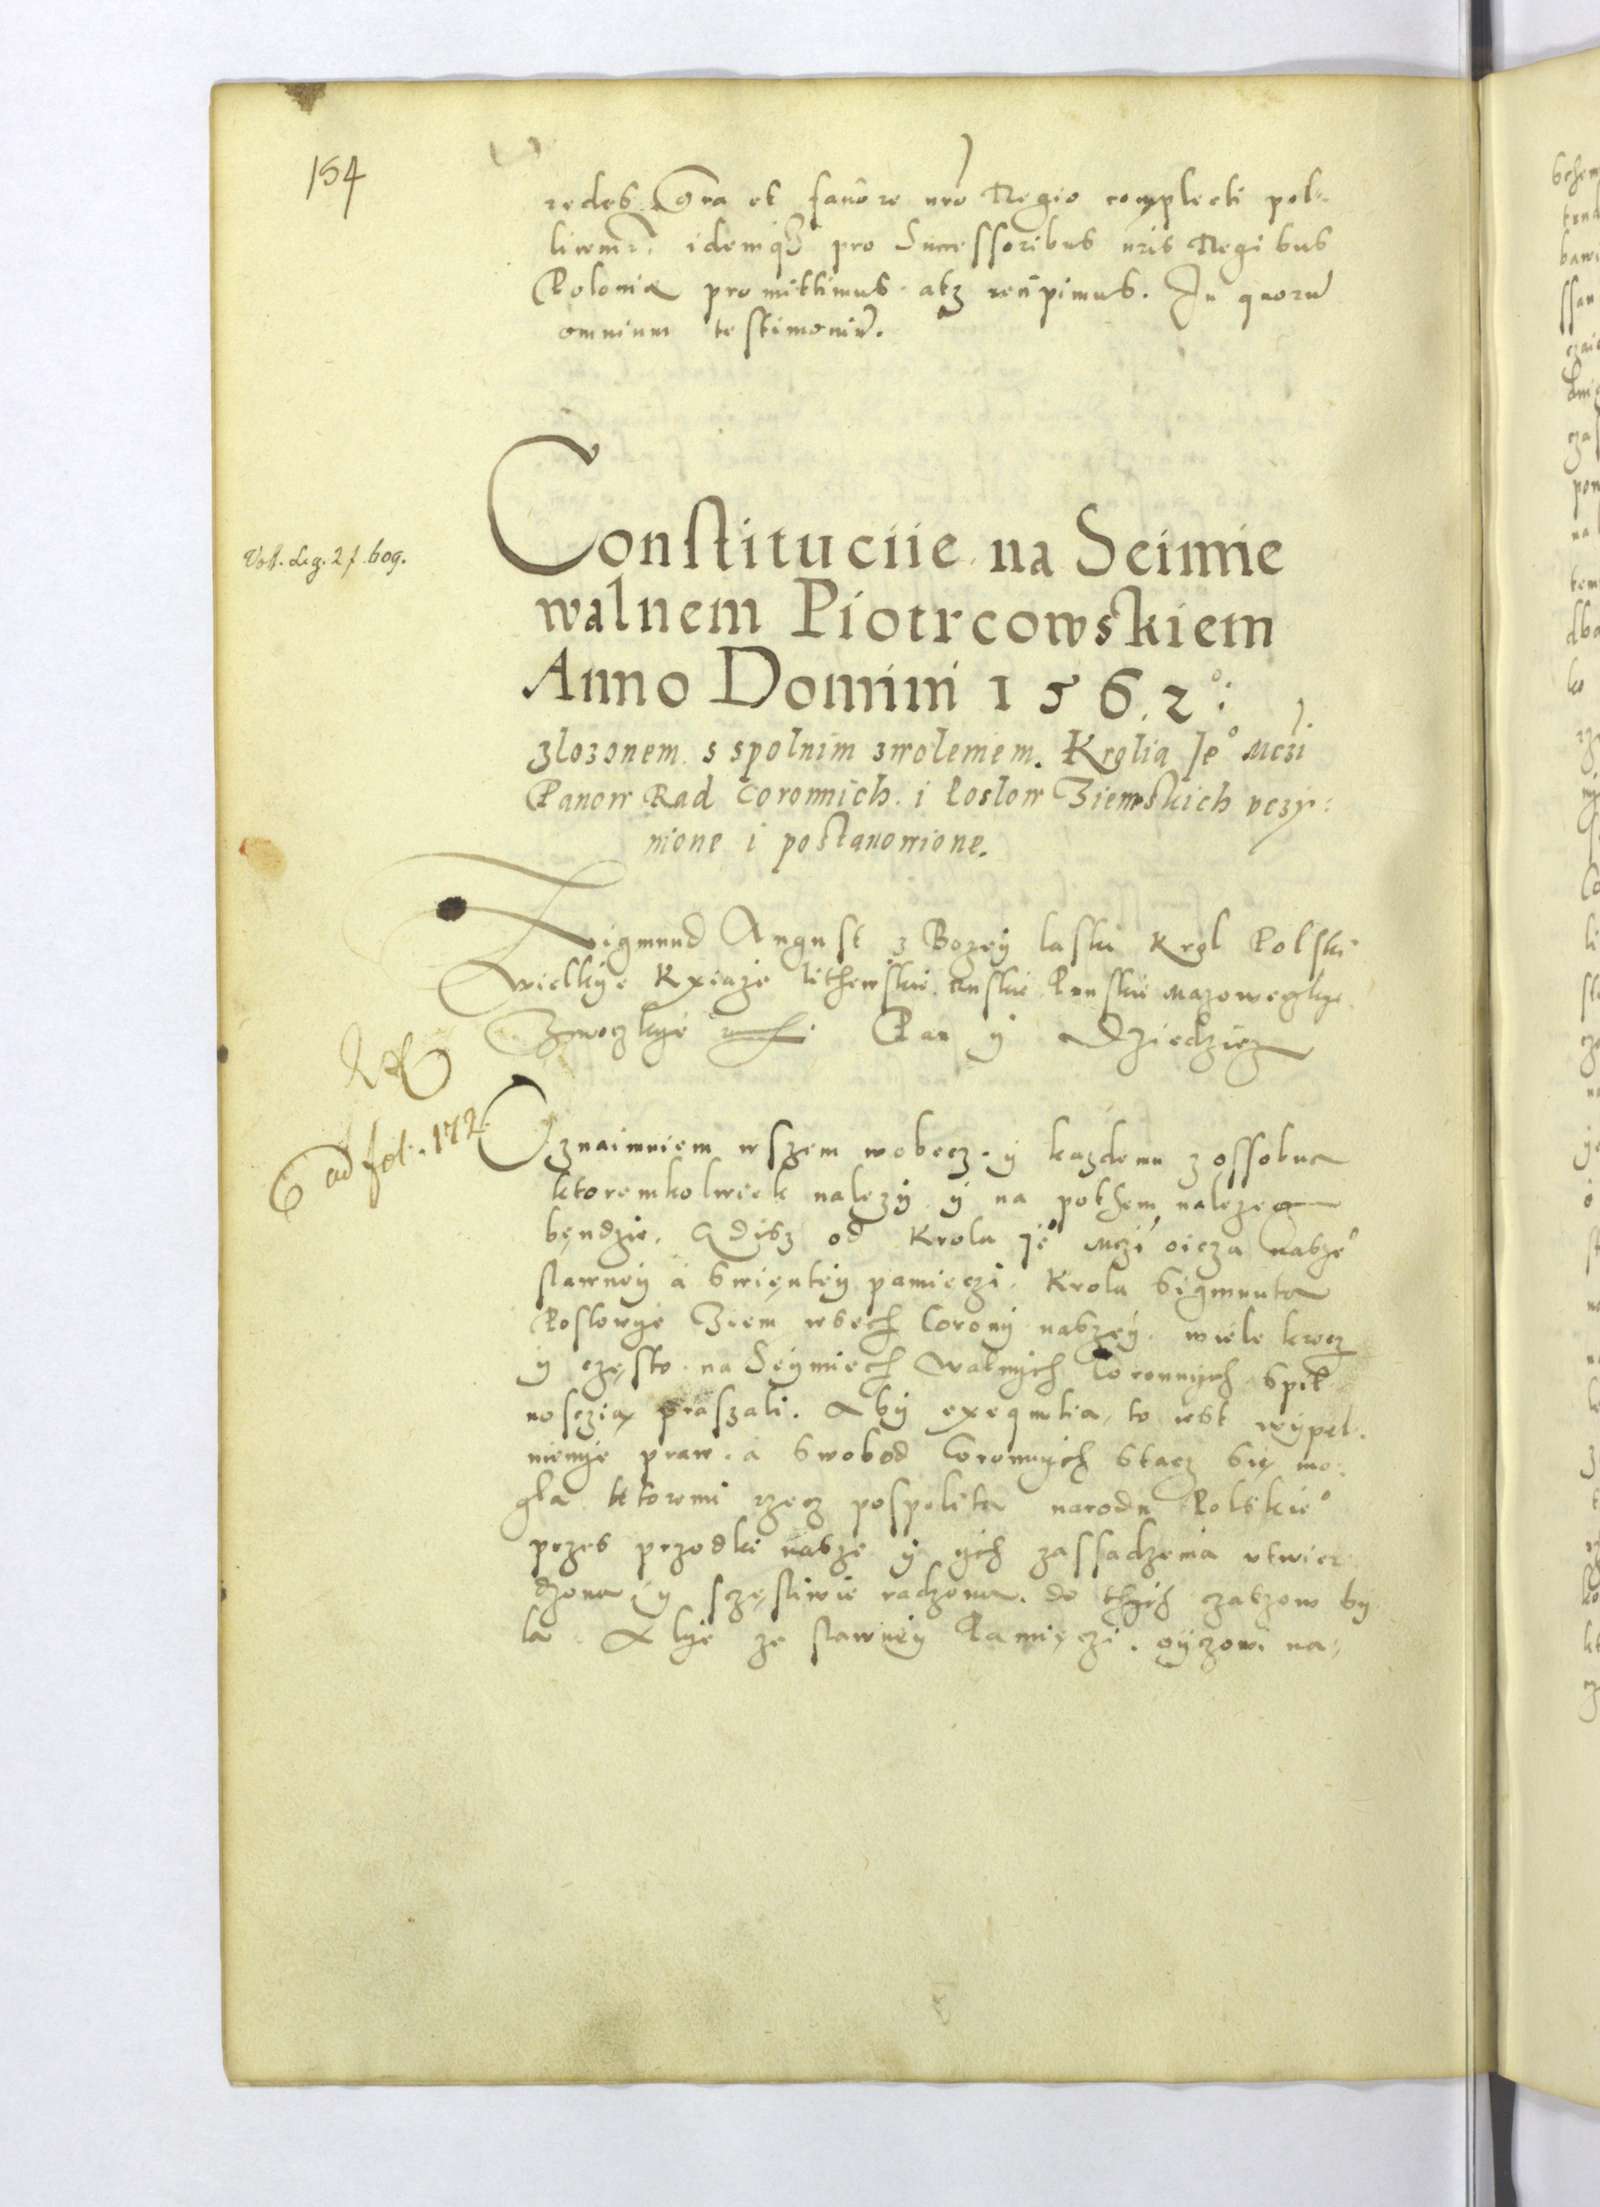 154
redes gra et favore nro Regio complecti pol-
licemr. idemq pro Successoribus nris Regibus
Poloniæ promittimus atq recipimus. In quorū
omnium testimoniū.
Vol. Leg. 2 f. 609.
Constituciie na Seimie
walnem Piotrcowskiem
Anno Domini 1562°:
zlozonem s spolnim zwoleniem. Krolia Je° Mczi
Panow Rad Coronnich i Poslow Ziemskich vczy:
nione i postanowione.
Zigmund August z Bozey laski Krol Polski
Wielkye Kxiaze lithewskie Ruskie Pruskie Mazoweczkye
Zmoczkye Pan y Dziedzicz
ad fol. 172
Oznaimuiem wszem wobecz y kazdemu z ossobna
ktoremkolwiek nalezy y na pothem nalezecz
bęndzie. Gdisz od Krola Je° Mczi oicza nasze°
slawney a swięntey pamieczi Krola Sigmunta
Poslowye Ziem wsech Corony naszey wiele krocz
y często na Seymiech Walnych Coronnych s pil
nosczią praszali. Aby exequutia, to iest wypel.
nienye praw a swobod Coronnych stacz się mo:
gła ktoremi rzecz pospolita narodu Polskie°
przes przodki nasze y ych zassadzenia utwier
dzona y szczęsliwie radzona do thych czaszow by
la Alye ze slawney Pamięczi oyczowi na,